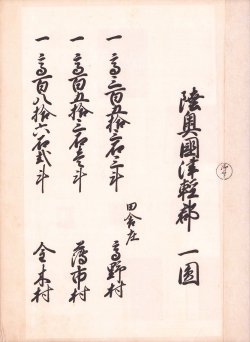 陸奥國津軽郡 一圓
田舎庄
一 高三百五拾三石三斗 高野村
一 高百五拾三石壱斗 薄市村
一 高百八拾六石弐斗 金木村